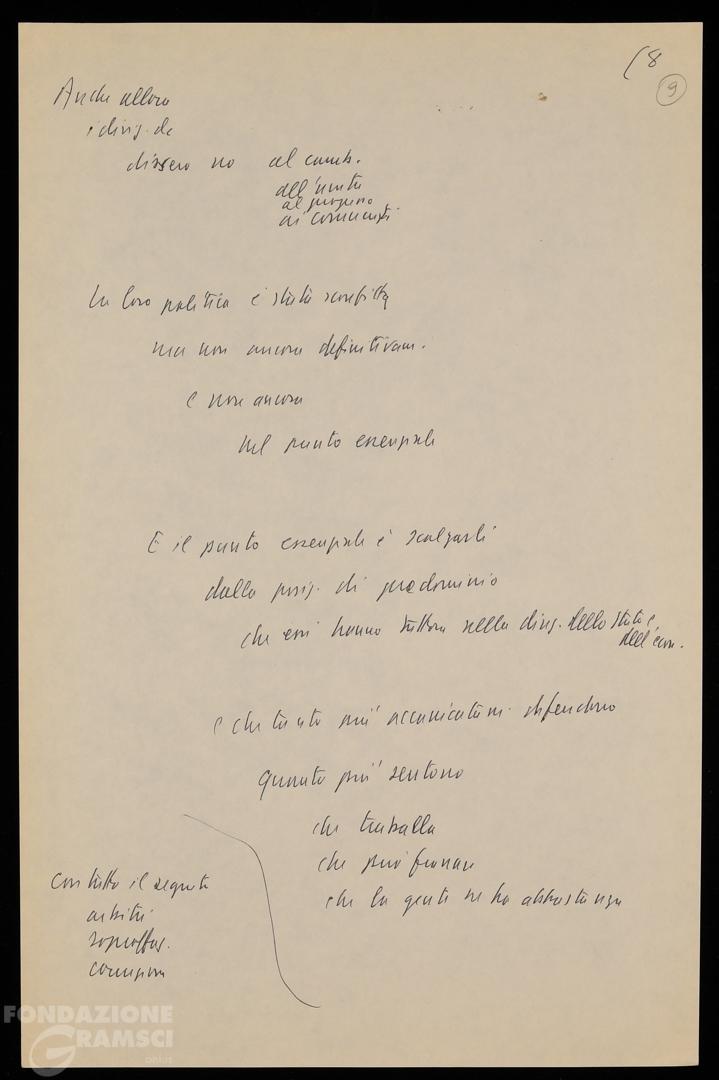 (8
9
Anche allora
i dirig. dc
dissero no al camb.
all'unità
al progresso
ai comunisti
La loro politica è stata sconfitta
ma non ancora definitivam.
e non ancora
nel punto essenziale
E il punto essenziale è scalzarli
dalla posiz. di predominio
che essi hanno tuttora nella direz. dello stato e
dell'econ.
e che tanto più accanitam. difendono
quanto più sentono
che traballa
che può franare
che la gente ne ha abbastanza
Con tutto il seguito
arbitri
sopraffaz.
corruzione
FONDAZIONE
GRAMSCI
onlus